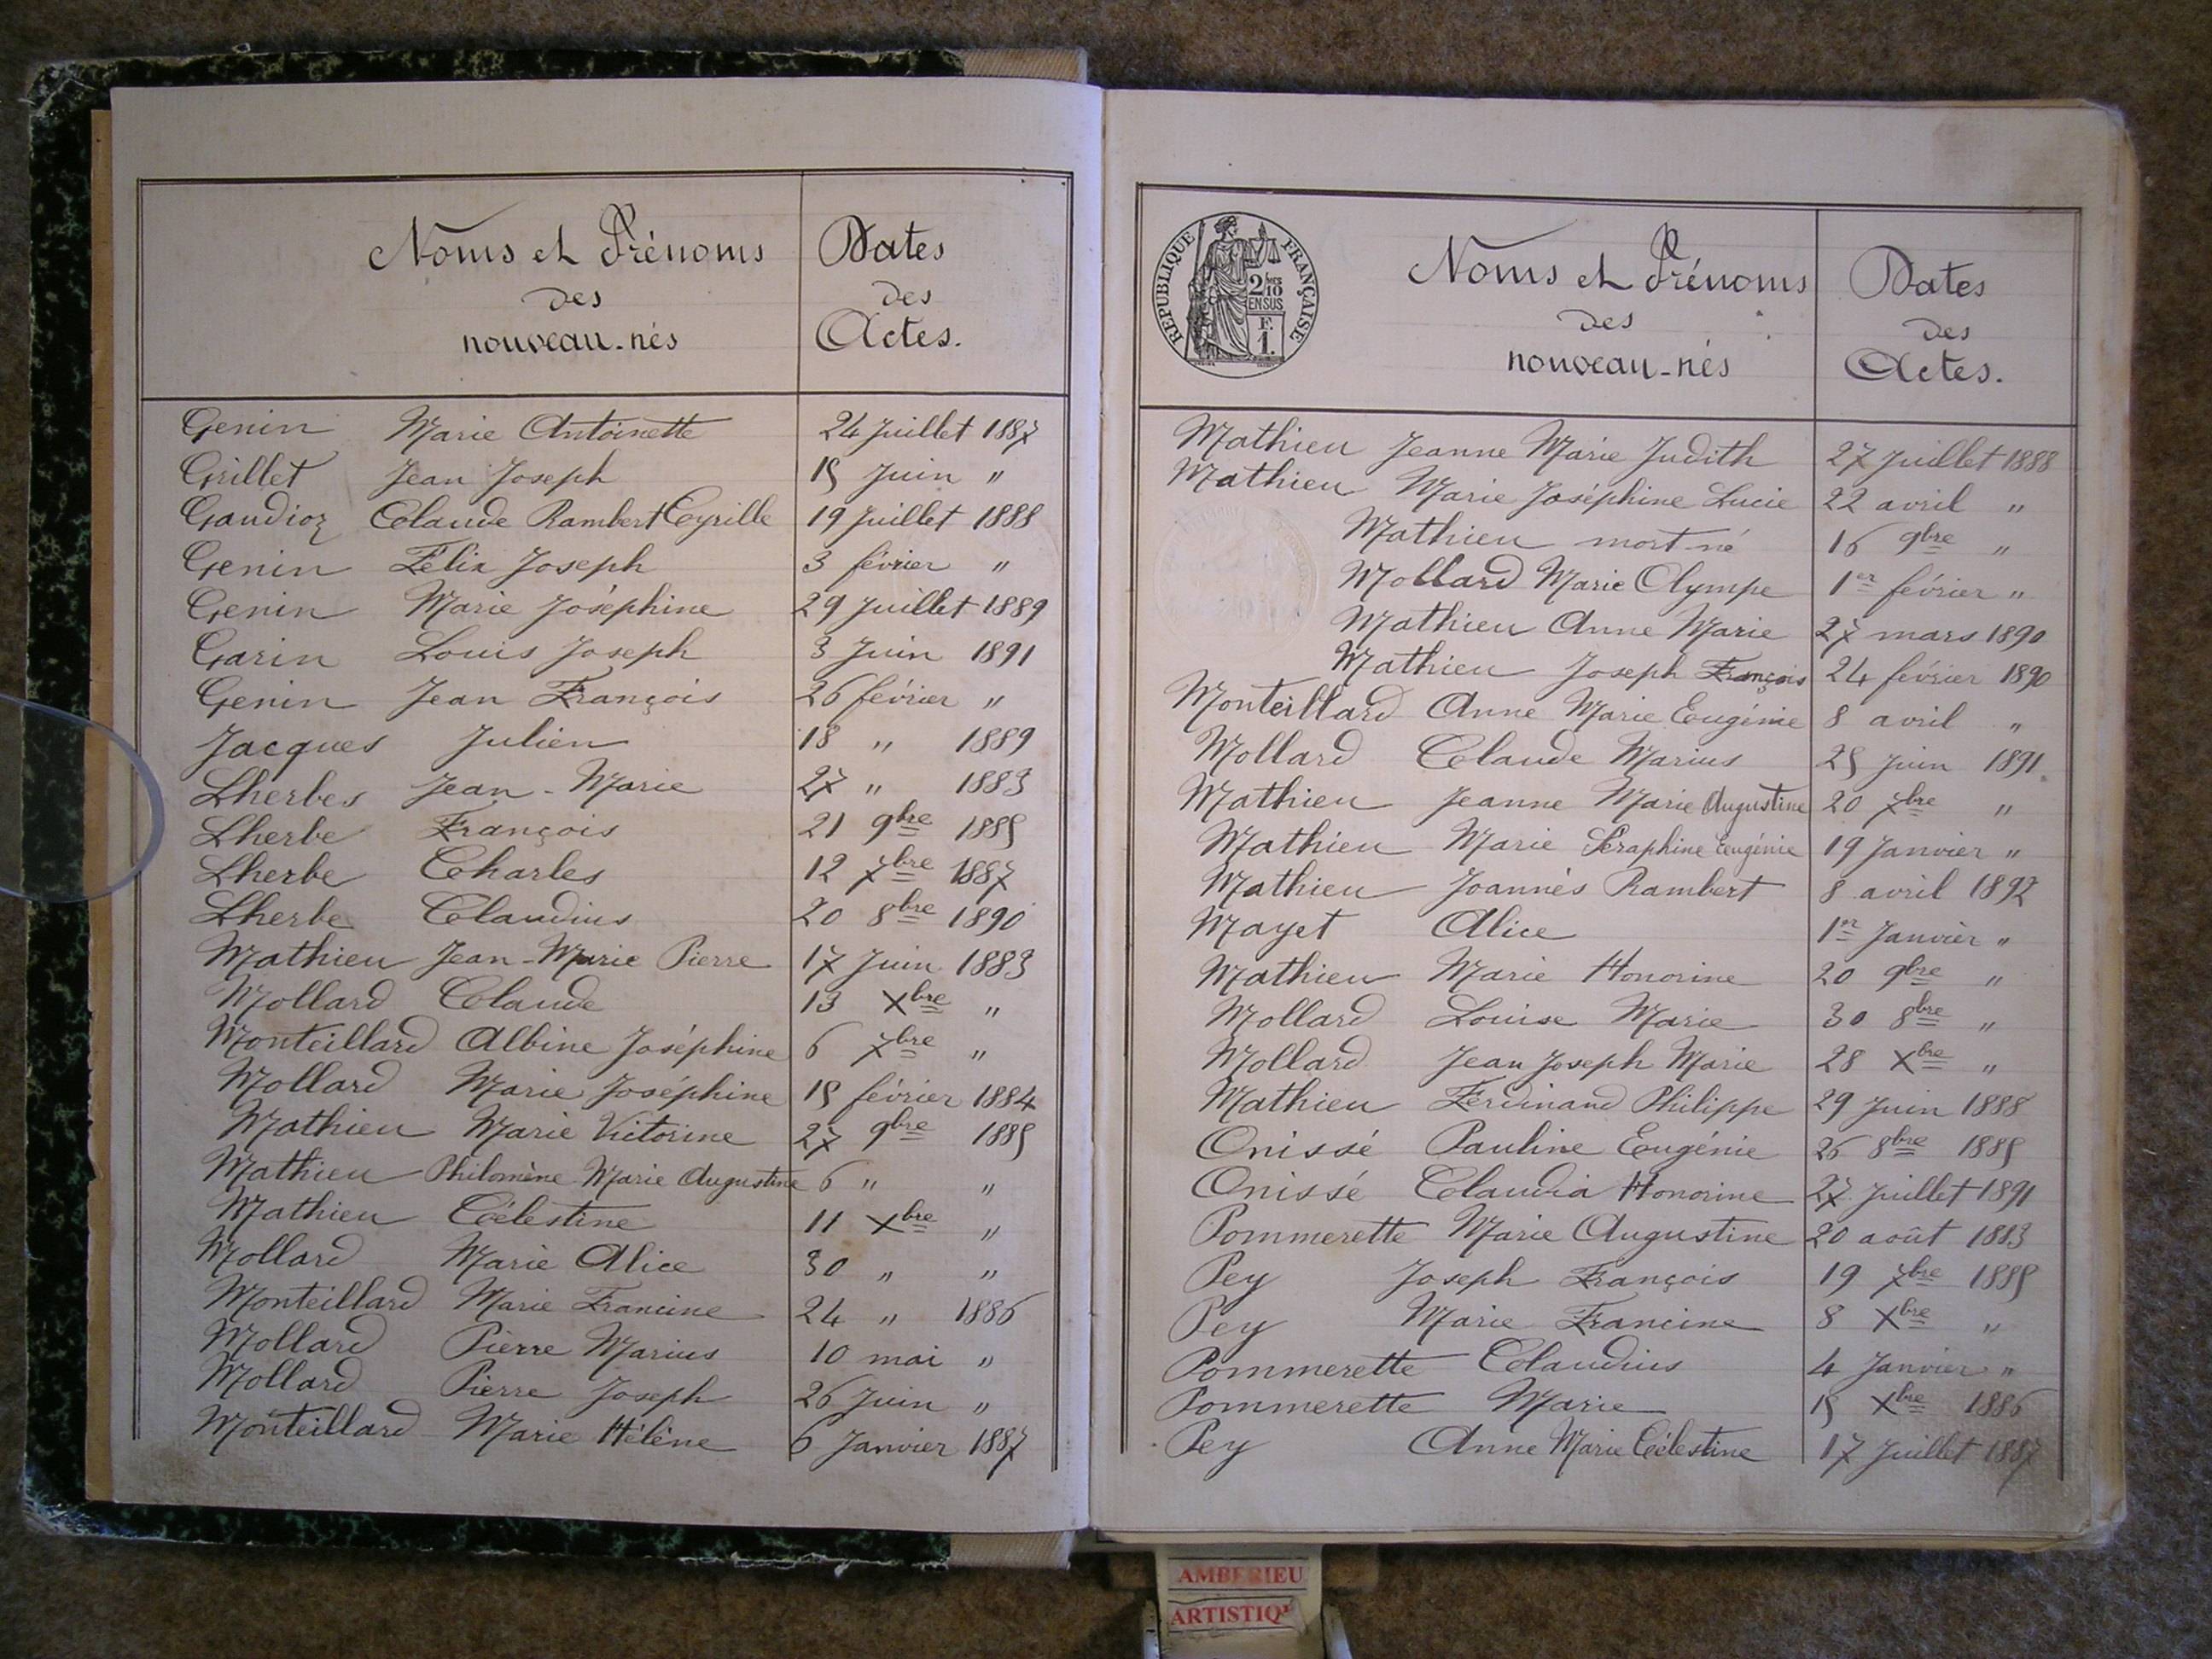 Noms et Prénoms
des
nouveau-nés
Dates
des
Actes.
Genin Marie Antoinette 24 Juillet 1887
Grillet Jean Joseph 15 Juin "
Gaudioz Claude Rambert Cyrille 19 Juillet 1888
Genin Félix Joseph 3 février "
Genin Marie Joséphine 29 Juillet 1889
Garin Louis Joseph 3 Juin 1891
Genin Jean François 26 février "
Jacques Julien 18 " 1889
Lherbes Jean-Marie 27 " 1883
Lherbe François 21 9bre 1885
Lherbe Charles 12 7bre 1887
Lherbe Claudius 20 8bre 1890
Mathieu Jean-Marie Pierre 17 Juin 1883
Mollard Claude 13 Xbre "
Monteillard Albine Joséphine 6 7bre "
Mollard Marie Joséphine 15 février 1884
Mathieu Marie Victorine 27 9bre 1885
Mathieu Philomène Marie Augustine 6 " "
Mathieu Célestine 11 Xbre "
Mollard Marie Alice 30 " "
Monteillard Marie Francine 24 " 1886
Mollard Pierre Marius 10 mai "
Mollard Pierre Joseph 26 Juin "
Monteillard Marie Hélène 6 Janvier 1887
RÉPUBLIQUE FRANÇAISE
2/10
EN SUS
F.
1.
Noms et Prénoms
des
nouveau-nés
Dates
des
Actes.
Mathieu Jeanne Marie Judith 27 Juillet 1888
Mathieu Marie Joséphine Lucie 22 avril "
Mathieu mort-né 16 9bre "
Mollard Marie Olympe 1er février "
Mathieu Anne Marie 27 mars 1890
Mathieu Joseph François 24 février 1890
Monteillard Anne Marie Eugénie 8 avril "
Mollard Claude Marius 25 Juin 1891
Mathieu Jeanne Marie Augustine 20 7bre "
Mathieu Marie Séraphine Eugénie 19 Janvier "
Mathieu Joannès Rambert 8 avril 1892
Mayet Alice 1er Janvier "
Mathieu Marie Honorine 20 9bre "
Mollard Louise Marie 30 8bre "
Mollard Jean Joseph Marie 28 Xbre "
Mathieu Ferdinand Philippe 29 Juin 1888
Onissé Pauline Eugénie 26 8bre 1885
Onissé Claudia Honorine 27 Juillet 1891
Pommerette Marie Augustine 20 août 1883
Pey Joseph François 19 7bre 1885
Pey Marie Francine 8 Xbre "
Pommerette Claudius 4 Janvier "
Pommerette Marie 15 Xbre 1886
Pey Anne Marie Célestine 17 Juillet 1887
AMBERIEU
ARTISTIQ